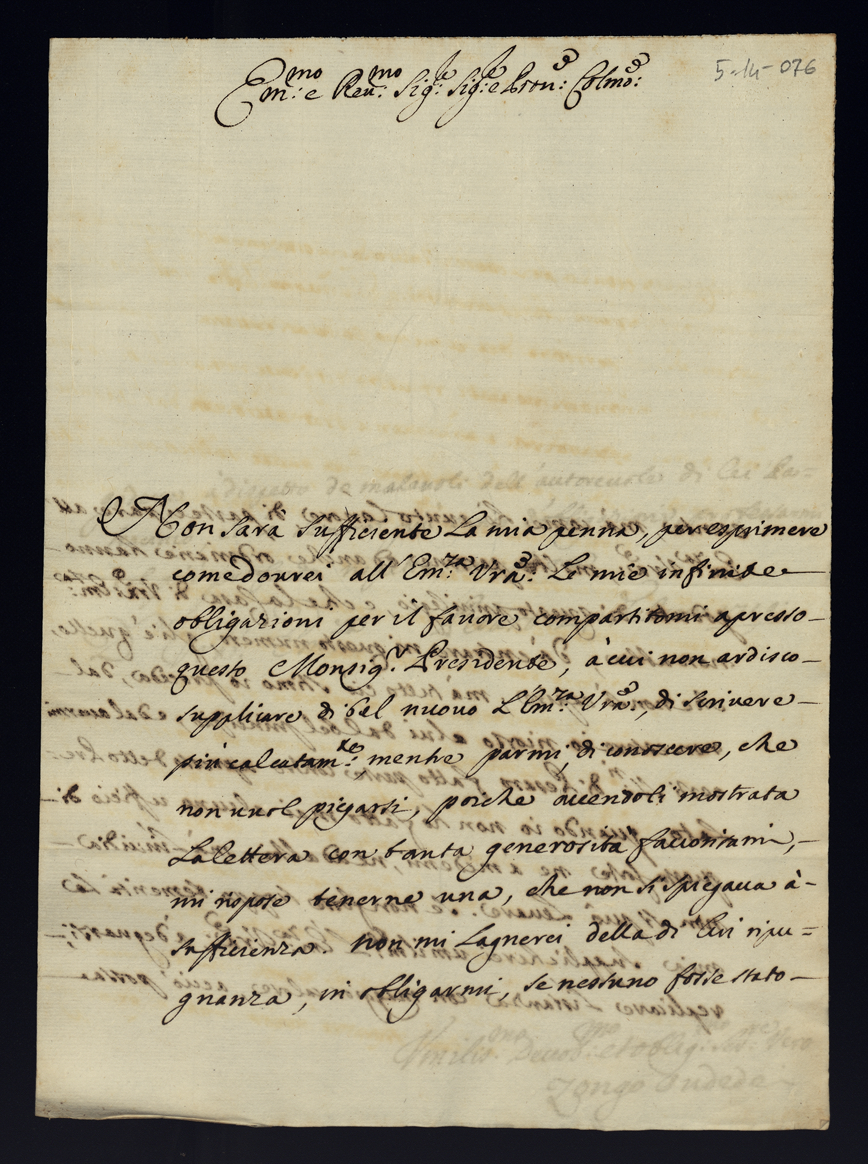 5-14-076
Em:mo e Reu:mo Sig:re Sig:re e Pron:e Colmo:e
Non sarà sufficiente La mia penna, per esprimere
come dourei all'Em:za Vra:e Le mie infinite
obligazioni per il fauore compartitomi apresso
questo Monsig:r Presidente, à cui non ardisco
supplicare di bel nuovo L'Em:za Vra:e, di scriuere
più calcatam:te, mentre parmi di conoscere, che
non uuol piegarsi, poiche auendoli mostrata
La lettera con tanta generosità
mi rispose tenerne una, che non si spiegaua à
sufficienza. Non mi Lagnerei della di Lui ripu=
gnanza, in obligarmi, se nessuno fosse stato